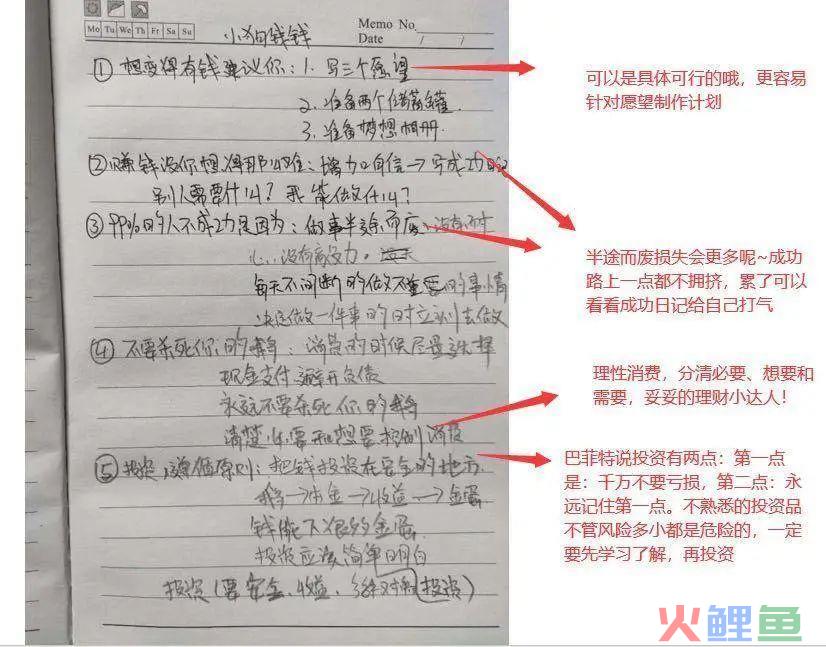 Memo No
Mo Tu We Th Fr Sa Su
Date / /
小狗钱钱
① 想变得有钱建议你：1. 写三个愿望
2. 准备两个储蓄罐.
3. 准备梦想相册.
② 赚钱没你想得那么难：增加自信→写成功日记
别人需要什么？我能做什么？
③ 99%的人不成功是因为：做事半途而废、没有耐
心、没有
每天不间断的做不重要的事情
决定做一件事的时立刻去做
④ 不要杀死你的鹅：消费的时候尽量选择
现金支付 避开负债
永远不要杀死你的鹅
清楚 需要和想要 控制消费
⑤ 投资 原则：把钱投资在安全的地方.
鹅→本金→收益→金蛋
钱能下很多金蛋
投资应该简单明白
投资（要安全、收益、 投资）
可以是具体可行的哦，更容易
针对愿望制作计划
半途而废损失会更多呢~成功
路上一点都不拥挤，累了可以
看看成功日记给自己打气
理性消费，分清必要、想要和
需要，妥妥的理财小达人！
巴菲特说投资有两点：第一点
是：千万不要亏损，第二点：永
远记住第一点。不熟悉的投资品
不管风险多小都是危险的，一定
要先学习了解，再投资
火鲤鱼